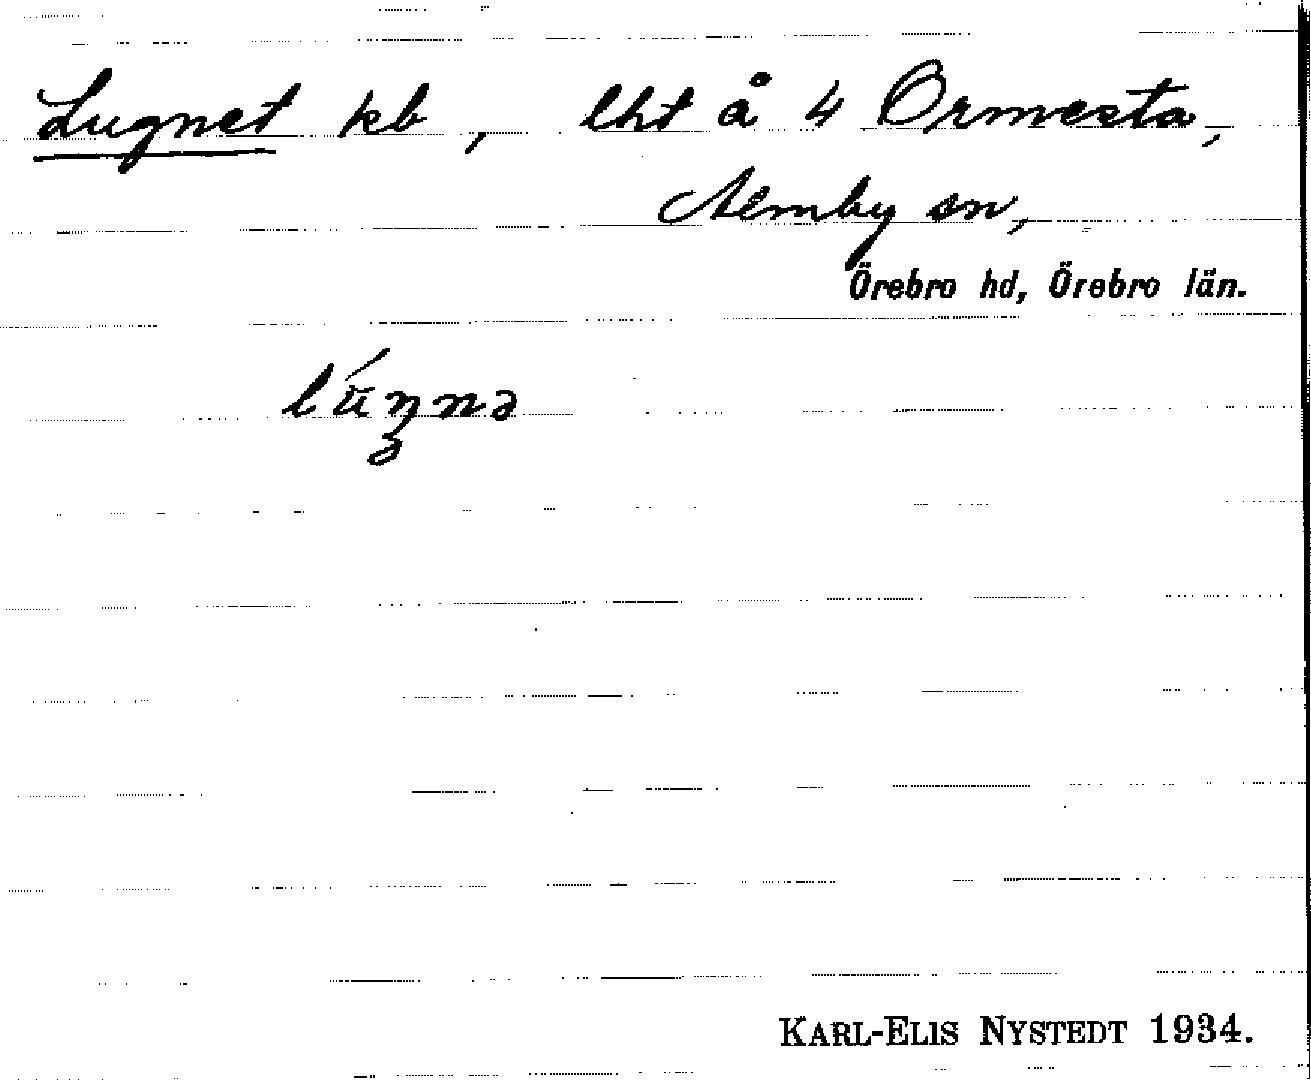 Lugnet kb, lht å 4 Ormesta,
Almby sn,
Örebro hd, Örebro län.
KARL-ELIS NYSTEDT 1934.